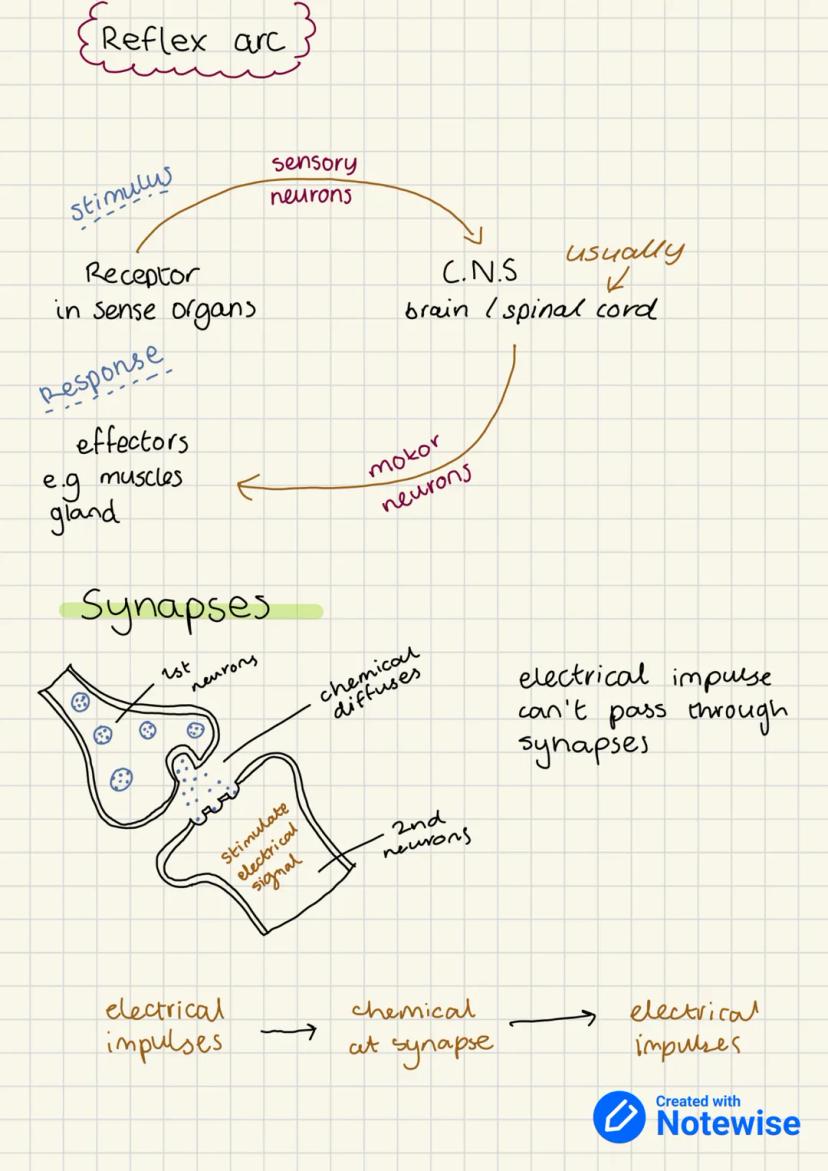 Reflex arc
stimulus
sensory
neurons
Receptor
in sense organs
C.N.S
usually
brain / spinal cord
Response
effectors
e.g muscles
gland
motor
neurons
Synapses
1st
neurons
chemical
diffuses
electrical impulse
can't pass through
synapses
stimulate
electrical
signal
2nd
neurons
electrical
impulses
chemical
at synapse
electrical
impulses
Created with
Notewise